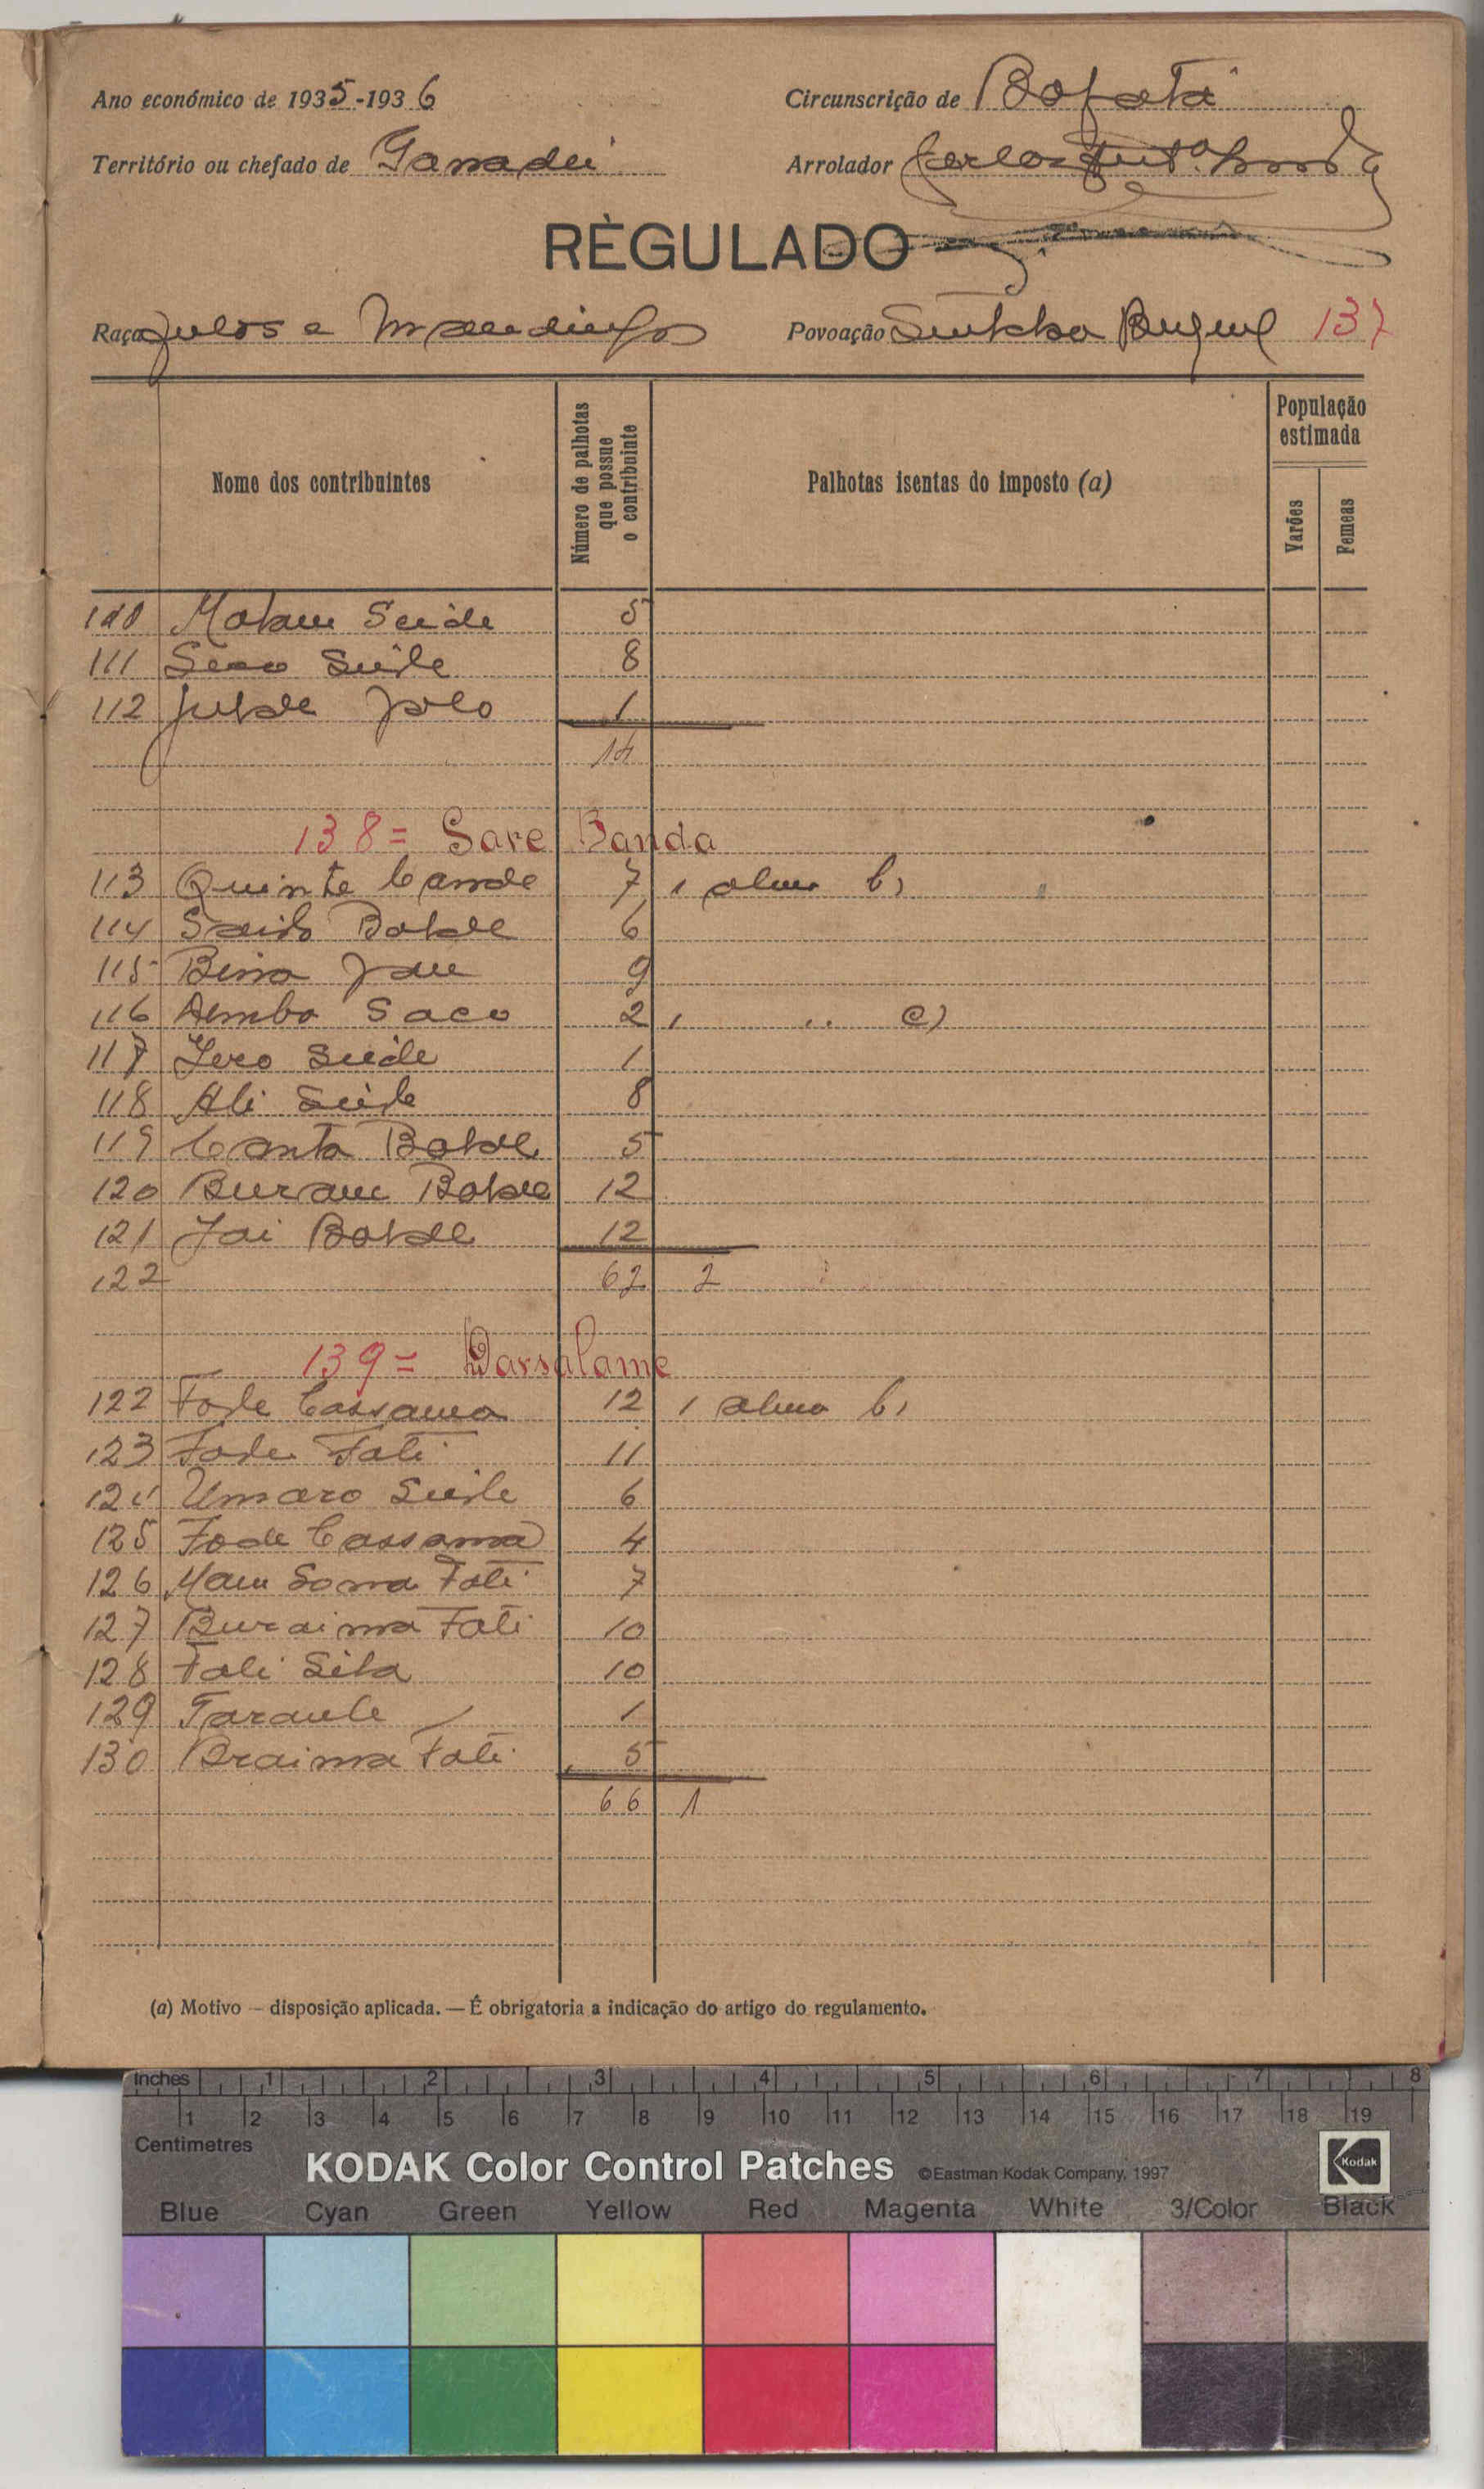 Ano económico de 1935-1936
Circunscrição de Bafatá
Território ou chefado de Ganadú
Arrolador Carlos
RÈGULADO
Raça Fulos e Mandingos
Povoação Sintcha 137
Nome dos contribuintes
Número de palhotas que possue o contribuinte
Palhotas isentas do imposto (a)
População estimada
Varões
Femeas
110 Malam Seide 5
111 Seco Seide 8
112 Jalo 1
14
138 = Sare Banda
113 Quinte Cande 7 1 b)
114 Saido Balde 6
115 Jau 9
116 Saco 2 1 " c)
117 Iero Seide 1
118 Ali Seide 8
119 Canta Balde 5
120 Buram Balde 12
121 Jai Balde 12
122 62 2
139 = Darsalame
122 Fode Cassama 12 1 b)
123 Fode Fati 11
124 Umaro Seide 6
125 Fode Cassama 4
126 Mam Soma Fati 7
127 Buraima Fati 10
128 Fali Sila 10
129 1
130 Braima Fati 5
66 1
(a) Motivo — disposição aplicada. — É obrigatoria a indicação do artigo do regulamento.
Inches 1 2 3 4 5 6 7 8
1 2 3 4 5 6 7 8 9 10 11 12 13 14 15 16 17 18 19
Centimetres
KODAK Color Control Patches ©Eastman Kodak Company, 1997 Kodak
Blue Cyan Green Yellow Red Magenta White 3/Color Black